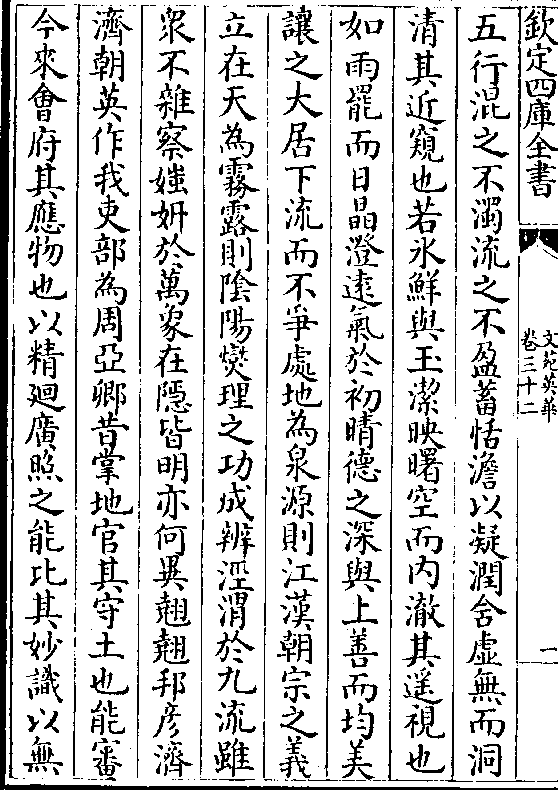 欽定四庫全書
文苑英華
卷三十二
一
五行混之不濁流之不盈蓄恬澹以凝潤含虛無而洞
清其近窺也若氷鮮與玉潔映曙空而内澈其遥視也
如雨罷而日晶澄逺氣於初晴德之深與上善而均美
讓之大居下流而不爭處地為泉源則江漢朝宗之義
立在天為霧露則陰陽爕理之功成辨涇渭於九流雖
衆不雜察媸妍於萬象在隱皆明亦何異翹翹邦彦濟
濟朝英作我吏部為周亞卿昔掌地官其守土也能審
今來會府其應物也以精廻廣照之能比其妙識以無